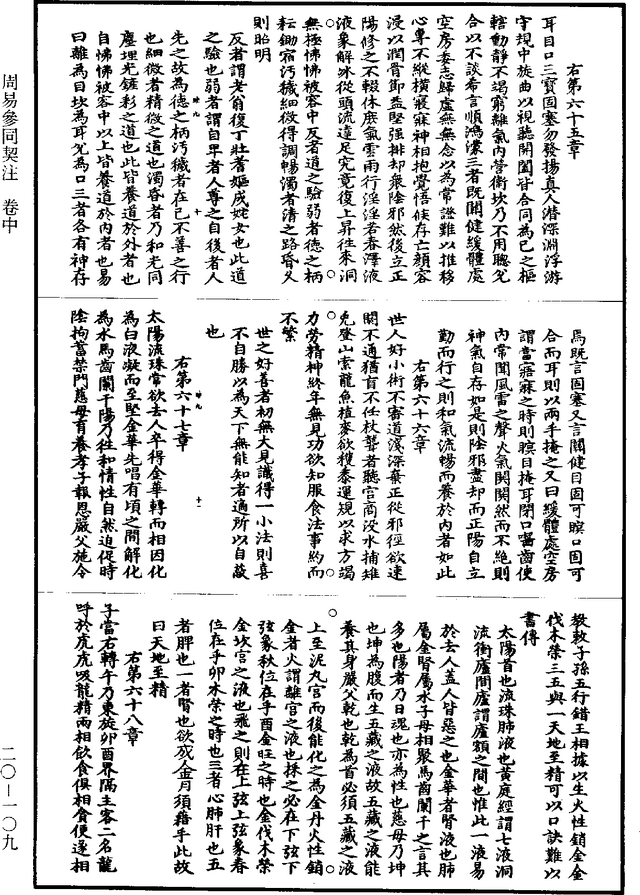 周易參同契注　卷中
右第六十五章
耳目口三寶固塞勿發揚真人潛深淵浮游
守規中旋曲以視聽開闔皆合同為己之樞
轄動靜不竭窮離氣內營衛坎乃不用聰兌
合以不談希言順鴻濛三者既關鍵緩體處
空房委志歸虛無無念以為常證難以推移
心專不縱橫寢寐神相抱覺悟候存亡顏容
浸以潤骨節益堅強排却衆陰邪然後立正
陽修之不輟休庶氣雲雨行淫淫若春澤液
液象解冰從頭流達足究竟復上昇往來洞
無極怫怫被容中反者道之驗弱者德之柄
耘鋤宿污穢細微得調暢濁者清之路昏久
則昭明
反者謂老翁復丁壯耆嫗成姹女也此道
之驗也弱者謂自卑者人尊之自後者人
先之故為德之柄污穢者在己不善之行
也細微者精微之道也濁昏者乃和光同
塵埋光鏟彩之道也此皆養道於外者也
自怫怫被容中以上皆養道於內者也易
曰離為目坎為耳兌為口三者各有神存
焉既言固塞又言關健目固可瞑口固可
合而耳則以兩手掩之又曰緩體處空房
謂當寤寐之時則瞑目掩耳閉口嚙齒便
內常聞風雷之聲火氣開開然而不絶則
神氣自存如是則陰邪盡却而正陽自立
勤而行之則和氣流暢而養於內者如此
右第六十六章
世人好小術不審道淺深棄正從邪徑欲速
閼不通猶盲不任杖聾者聽宮商没水捕雉
兔登山索龍魚植麥欲穫黍運規以求方竭
力勞精神終年無見功欲知服食法事約而
不繁
世之好善者初無大見識得一小法則喜
不自勝以為天下無能知者適所以自蔽
也
右第六十七章
太陽流珠常欲去人卒得金華轉而相因化
為白液凝而至堅金華先唱有頃之間解化
為水馬齒闌干陽乃往和情性自然迫促時
陰拘蓄禁門慈母育養孝子報恩嚴父施令
教敕子孫五行錯王相據以生火性銷金金
伐木榮三五與一天地至精可以口訣難以
書傳
太陽首也流珠肺液也黄庭經謂七液洞
流衝廬間廬謂廬額之間也惟此一液易
於去人蓋人皆惡之也金華者腎液也肺
屬金腎屬水子母相聚馬齒闌干之言其
多也陽者乃日魂也亦為性也慈母乃坤
也坤為腹而生五藏之液故五藏之液能
養其身嚴父乾也乾為首必須五藏之液
上至泥丸宮而後能化之為金丹火性銷
金者火謂離宮之液也採之必在下弦下
弦象秋位在乎酉金旺之時也金伐木榮
金坎宮之液也飛之則在上弦上弦象春
位在乎卯木榮之時也三者心肺肝也五
者脾也一者腎也欲成金月須藉乎此故
曰天地至精
右第六十八章
子當右轉午乃東旋卯酉界隔主客二名龍
呼於虎虎吸龍精兩相飲食俱相食便遂相
二〇—一〇九